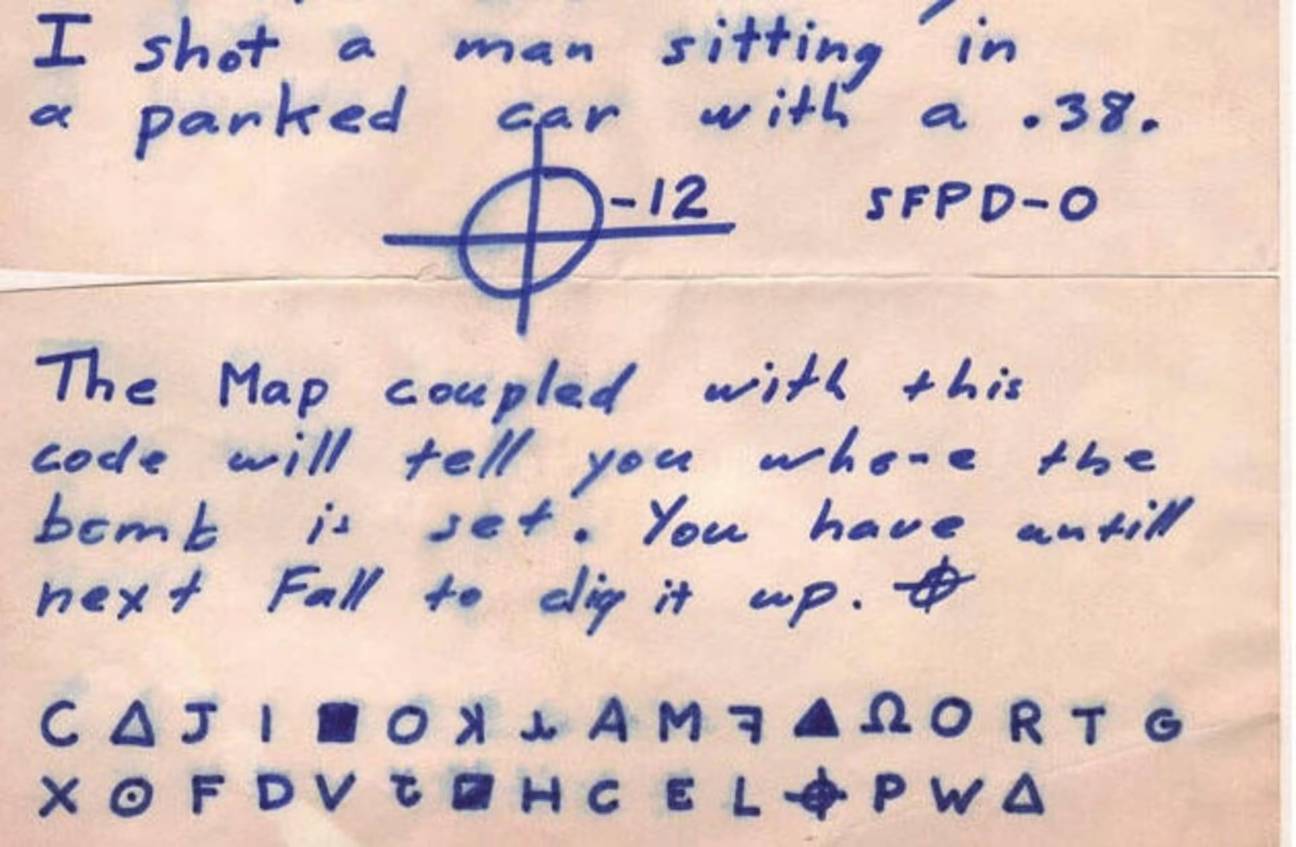 I shot a man sitting in
a parked car with a .38.
⌖ -12 SFPD-0
The Map coupled with this
code will tell you where the
bomb is set. You have untill
next Fall to dig it up. ⌖
C Δ J I ■ O ꓘ A M ꟻ ▲ Ω O R T G
X ⊙ F D V ◪ H C E L ⌖ P W Δ